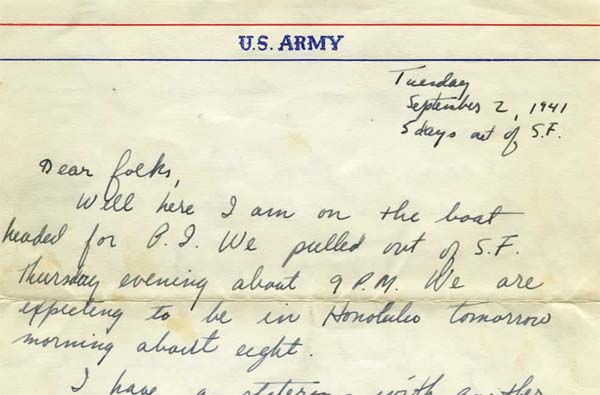 U.S. ARMY
Tuesday
September 2, 1941
5 days out of S.F.
Dear folks,
Well here I am on the boat
headed for P.I. We pulled out of S.F.
Thursday evening about 9 P.M. We are
expecting to be in Honolulu tomorrow
morning about eight.
I have a with another